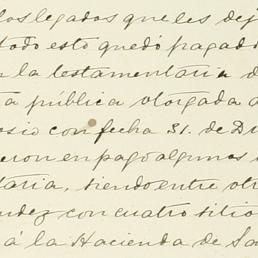 los legados que les dej
todo esto quedó pagad
n la testamentaria d
a pública otorgada a
osio con fecha 31. de D
eron en pago algunos
taria, siendo entre otr
dez con cuatro sitio
á la Hacienda de Sa